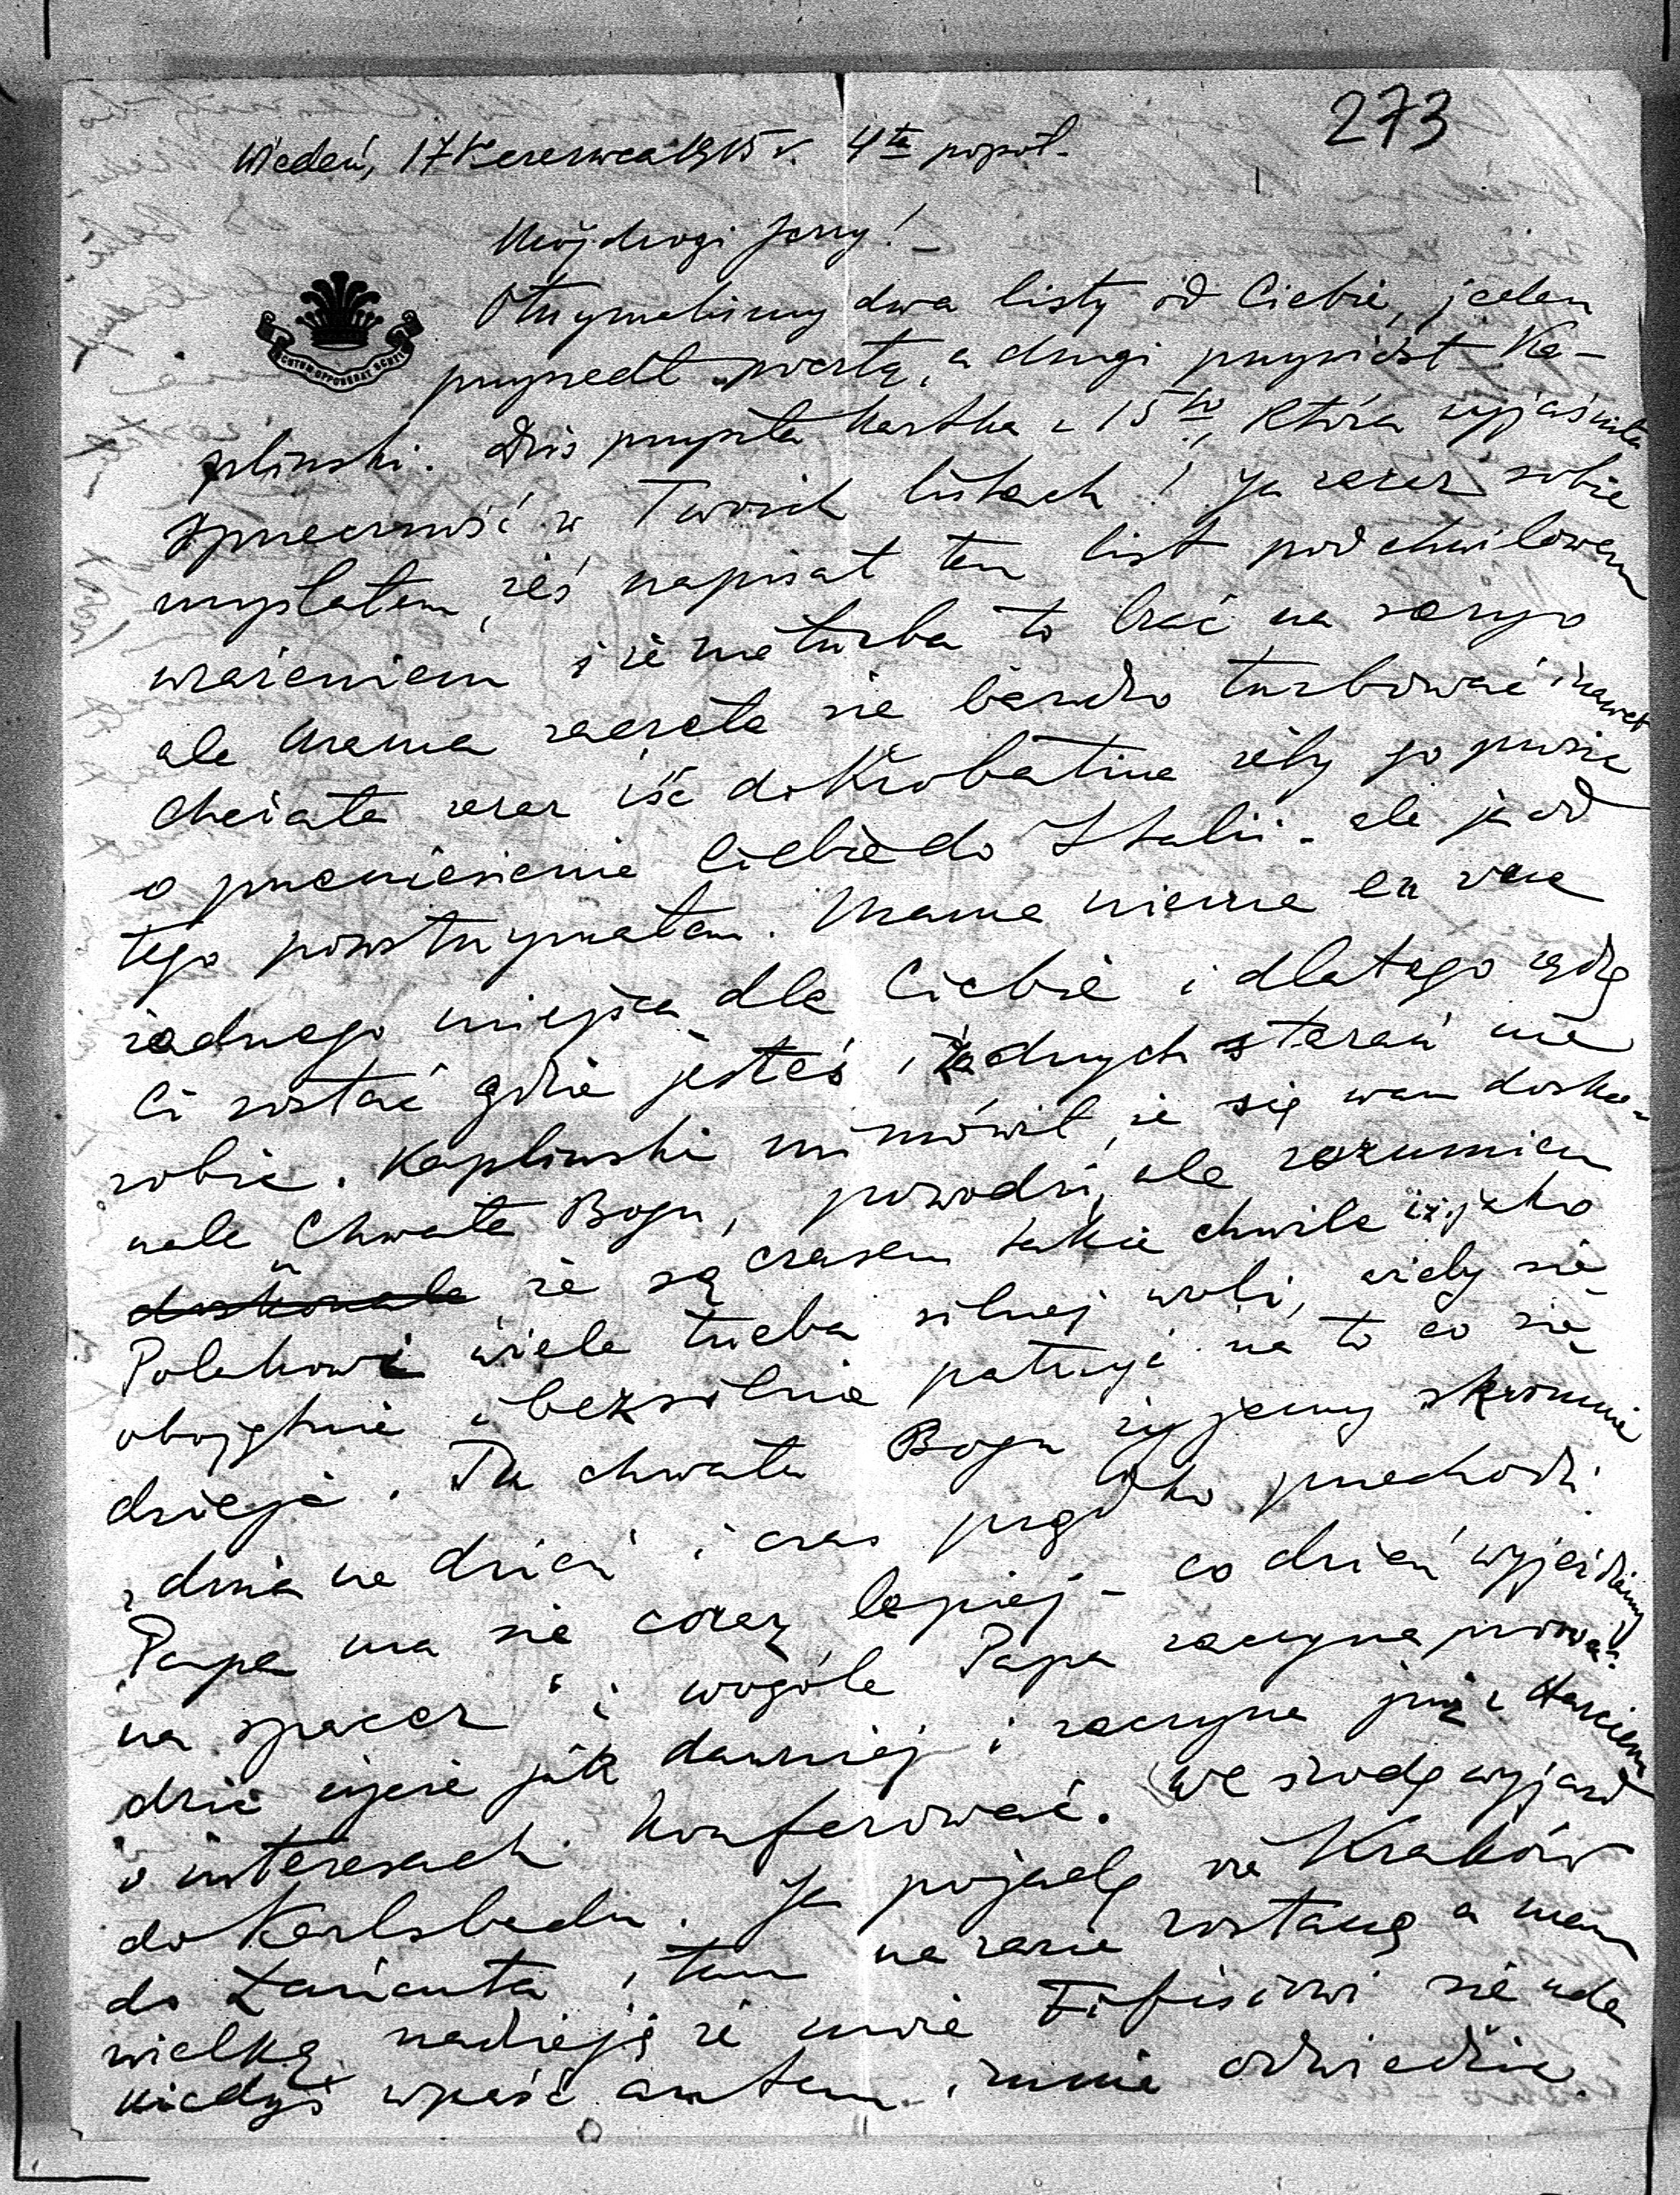 273
Wiedeń, 17go czerwca 1915 r. 4ta popoł.
Mój drogi Jerzy! –
Otrzymaliśmy dwa listy od Ciebie, jeden
przyszedł pocztą, a drugi przyniósł Ka-
pliński. Dziś przyszła kartka z 15go, która wyjaśniła
sprzeczność w Twoich listach! Ja zaraz sobie
myślałem, żeś napisał ten list pod chwilowem
wrażeniem i że nie trzba to brać na seryo
ale Mama zaczęła się bardzo turbować i nawet
chciała zaraz iść do Krobatina żeby go prosić
o przeniesienie Ciebie do Italii – ale ja od
tego powstrzymałem. Mama nie ma en vue
żadnego miejsca dla Ciebie i dlatego radzę
Ci zostać gdzie jesteś i żadnych starań nie
robić. Kapliński mi mówił, że się wam dosko-
nale Chwała Bogu, powodzi, ale rozumiem
doskonale że są czasem takie chwile iż jako
Polakowi wiele trzeba silnej woli, ażeby się
obojętnie i bezsilnie patrzyć na to co się
dzieje. Tu chwała Bogu żyjemy skromnie
z dnia na dzień i czas prędko przechodzi.
Papa ma się coraz lepiej – co dzień wyjeżdżamy
na spacer i wogóle Papa zaczyna prowa-
dzić życie jak dawniej i zaczyna już z
o interesach konferować. We środę wyjazd
do Karlsbadu. Ja pojadę via Kraków
do Łańcuta i tam na razie zostanę a mam
wielką nadzieję że może Fifisiowi się uda
kiedyś wpaść autem i mnie odwiedzić.